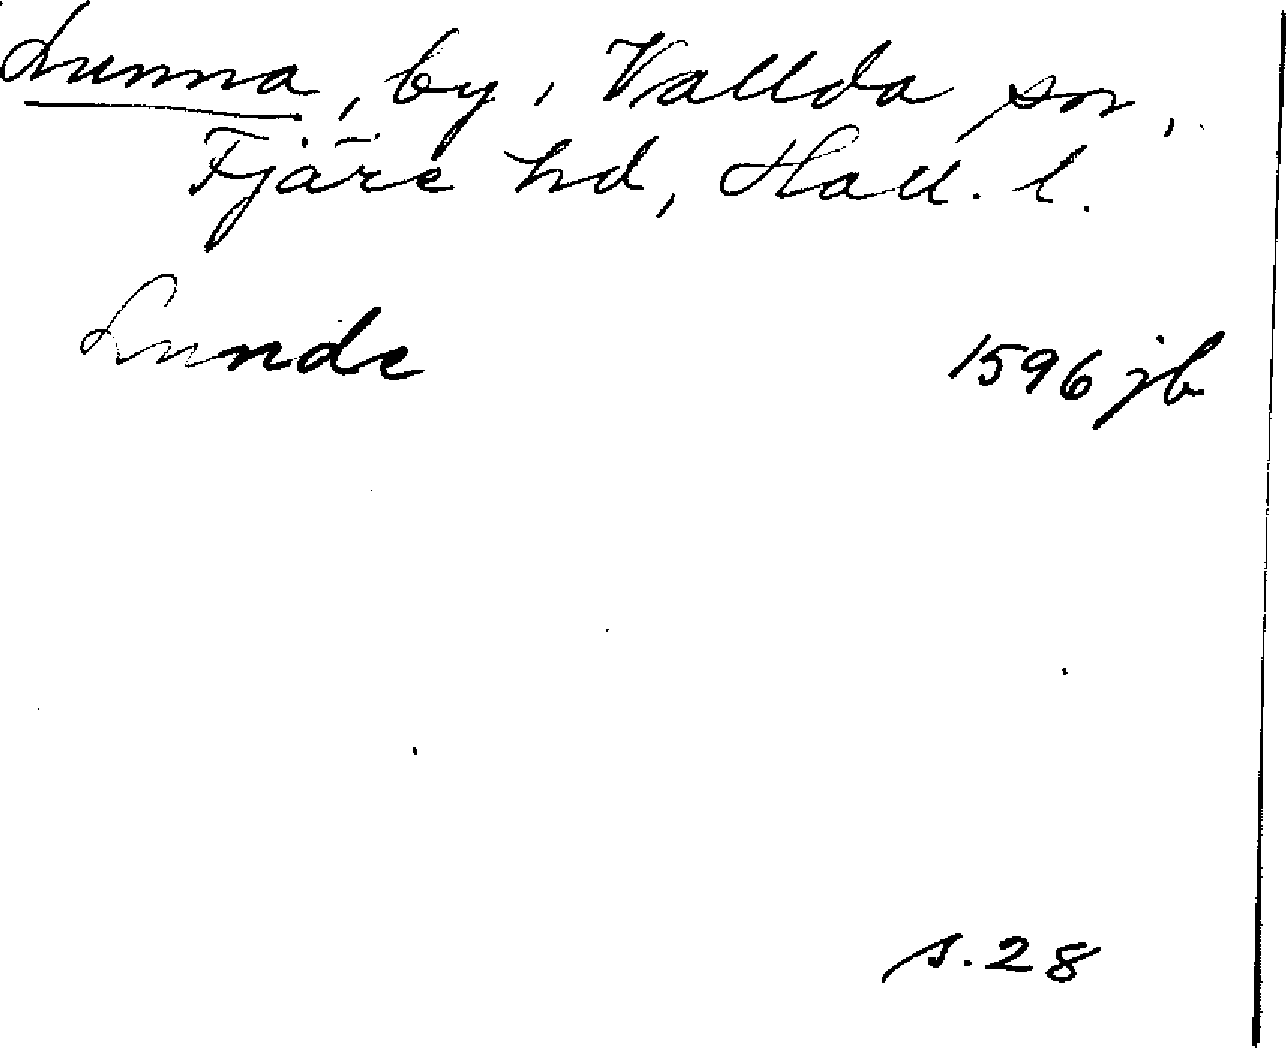 Lunna, by, Vallda sn,
Fjäre hd, Hall. l.
Lunde 1596 jb
s. 28